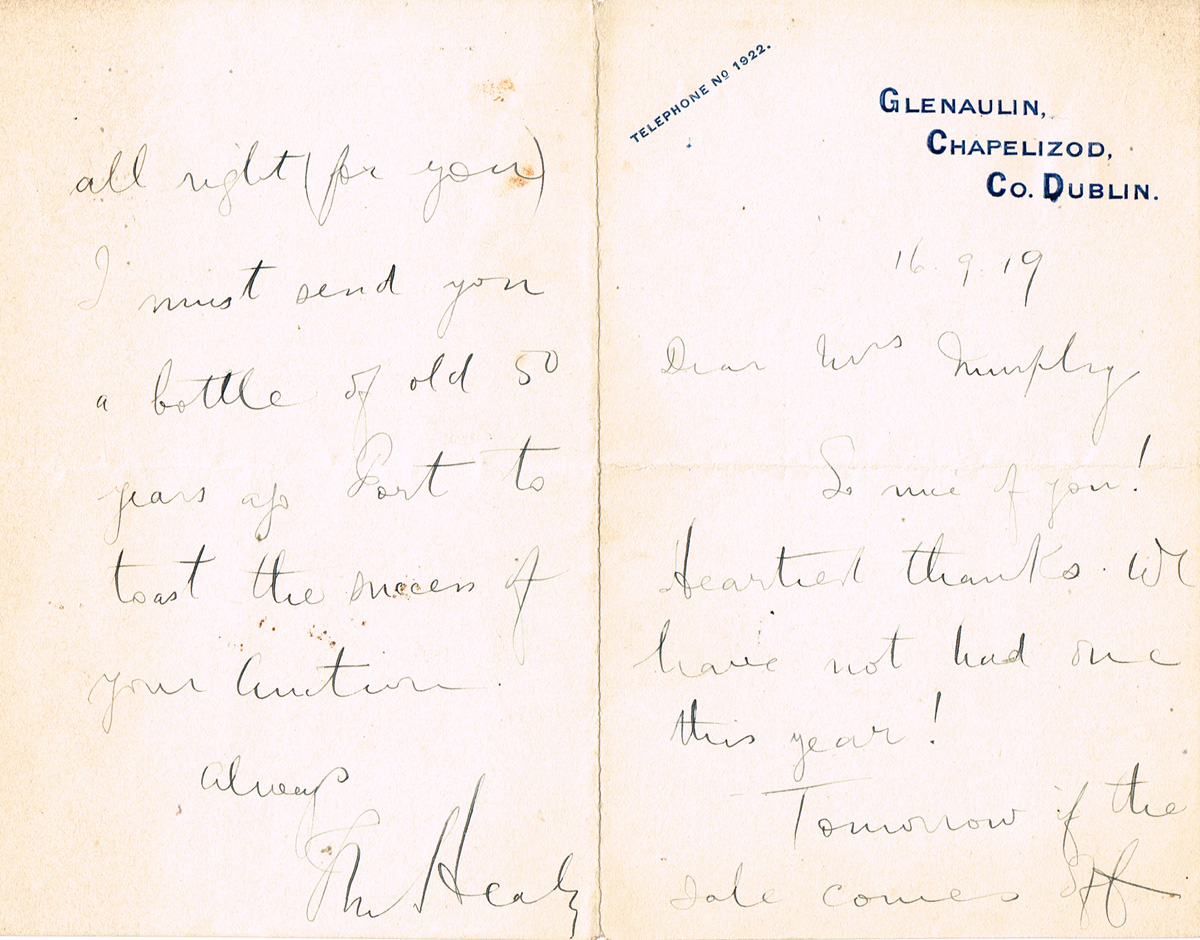 TELEPHONE No 1922.
GLENAULIN,
CHAPELIZOD,
CO. DUBLIN.
16.9.19
Dear Mrs Murphy
So nice of you!
Heartiest thanks. We
have not had one
this year!
Tomorrow if the
sale comes off
all right (for you)
I must send you
a bottle of old 50
years ago Port to
toast the success of
your Auction.
Always
Healy